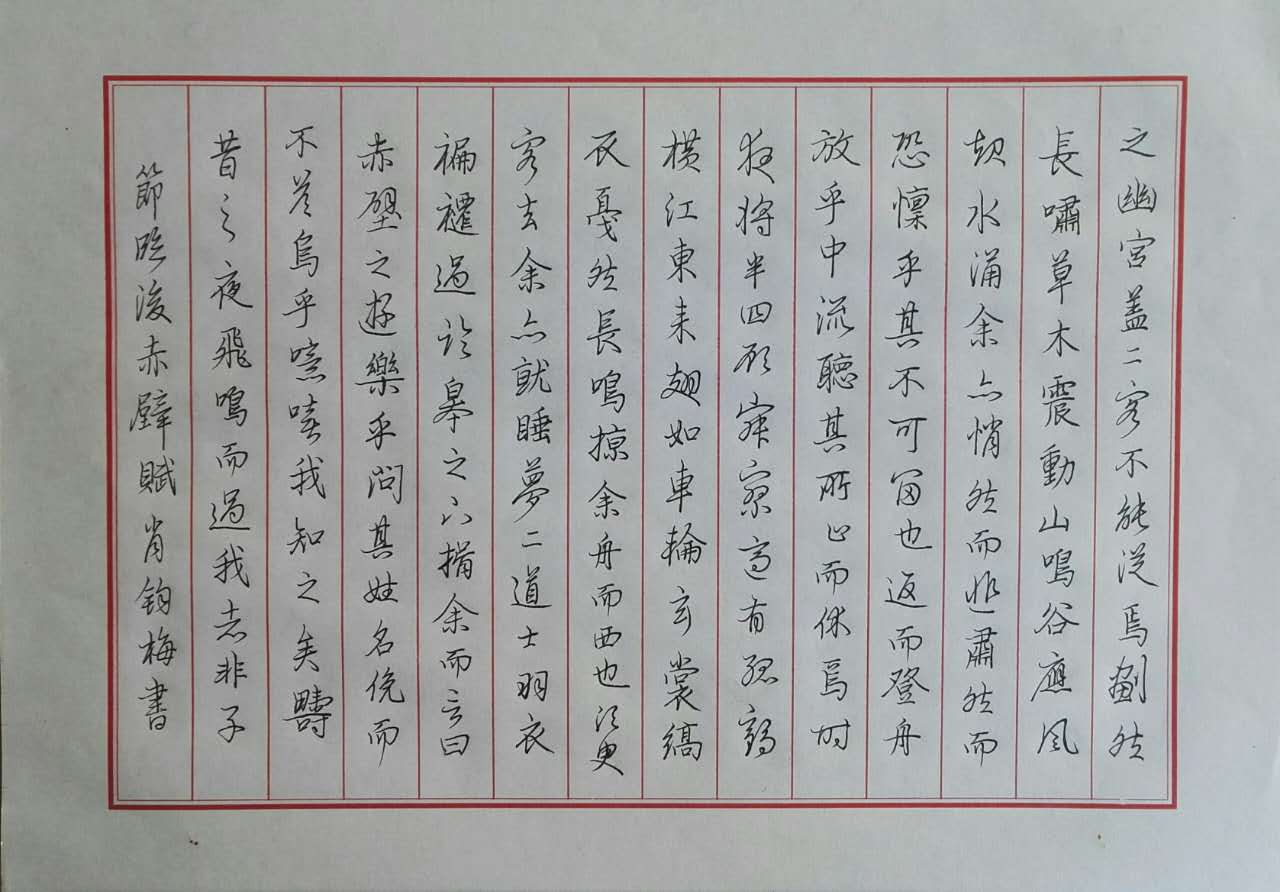 之幽宮蓋二客不能從焉劃然
長嘯草木震動山鳴谷應風
起水涌余亦悄然而悲肅然而
恐懍乎其不可留也返而登舟
放乎中流聽其所止而休焉時
夜將半四顧寂寥適有孤鶴
橫江東來翅如車輪玄裳縞
衣戛然長鳴掠余舟而西也須臾
客去余亦就睡夢二道士羽衣
褊褼過臨皋之下揖余而言曰
赤壁之遊樂乎問其姓名俛而
不答烏乎噫嘻我知之矣疇
昔之夜飛鳴而過我者非子
節臨後赤壁賦肖鈞梅書